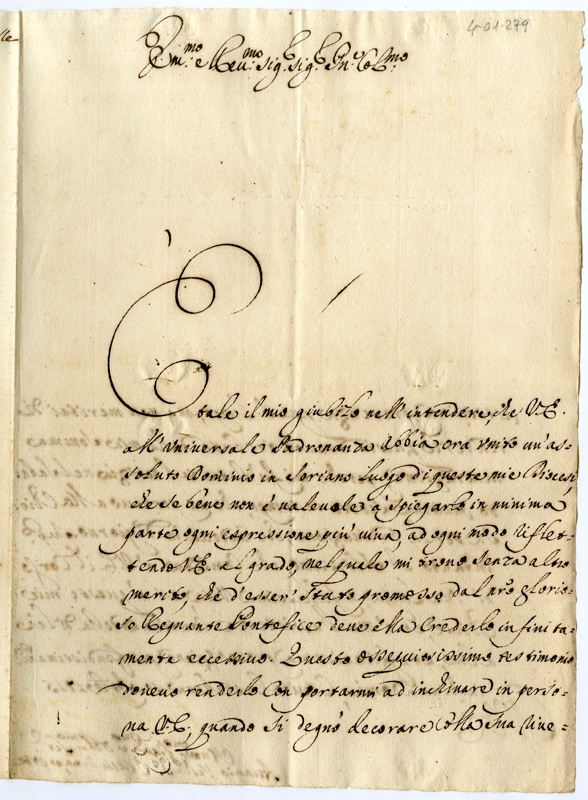 4-01-279
lle
Em.mo e Reu.mo Sig.r Sig.r Pn.e Col.mo
È tale il mio giubilo nell'intendere, che V.E.
all'Vniversale Padronanza abbia ora vnito un'as=
soluto Dominio in Soriano luogo di queste mie Diocesi,
che se bene non è valevole à spiegarlo in minima
parte ogni espressione più viva, ad ogni modo riflet=
tendo V.E. al grado, nel quale mi trovo senza altro
merito, che d'esser' stato promosso dal nr̃o glorio=
so Regnante Pontefice deve ella crederlo infinita=
mente eccessivo. Questo ossequiosissimo testimonio
dovevo renderlo con portarmi ad inchinare in perso=
na V.E. quando si degnò decorare cõlla sua viue=